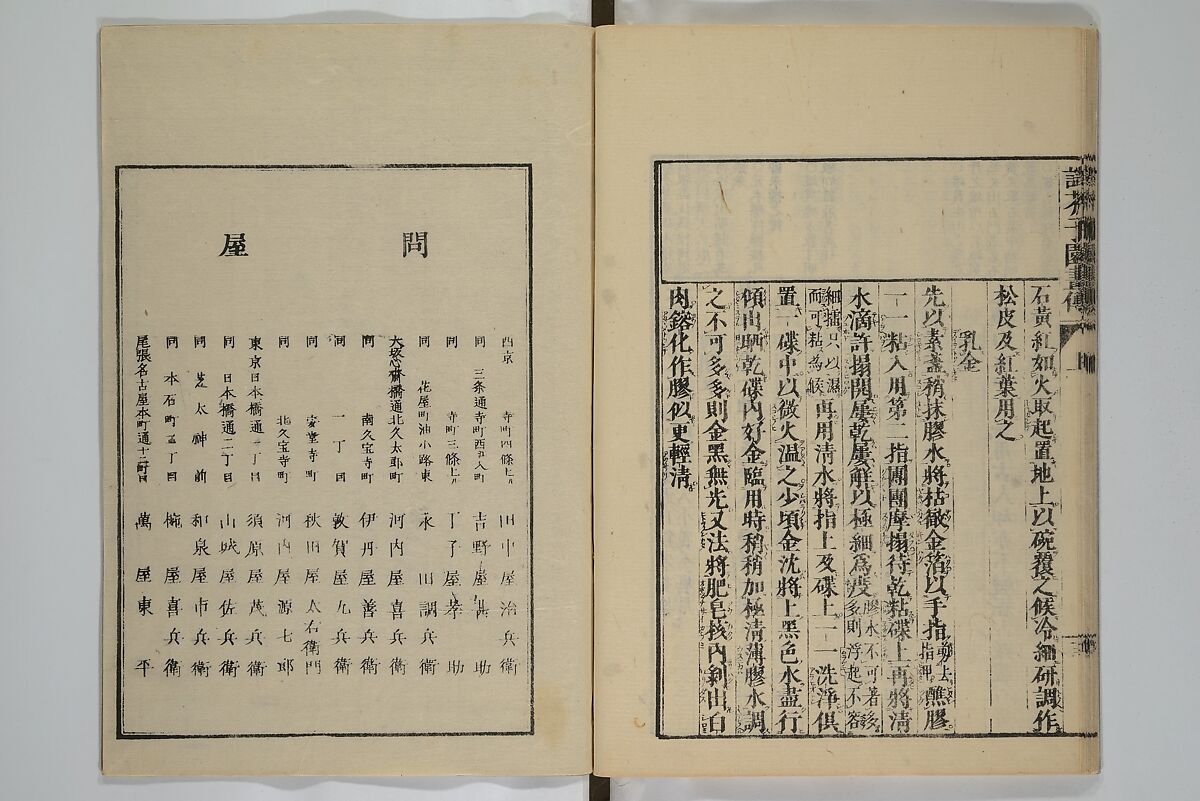 芥子園畫傳
石黃紅如火取起置地上以碗覆之候冷細研調作
松皮及紅葉用之
乳金
先以素盞稍抹膠水將枯徹金箔以手指剪去指甲蘸膠
一一粘入用第二指團團摩搨待乾粘碟上再將清
水滴許搨開屢乾屢解以極細為度膠水不可著多多則浮起不容
細搨只以濕而可粘為候再用清水將指上及碟上一一洗淨俱
置一碟中以微火溫之少頃金沈將上黑色水盡行
傾出晒乾碟內好金臨用時稍稍加極清薄膠水調
之不可多多則金黑無光又法將肥皂核內剝出白
肉鎔化作膠似更輕清
問屋
西京 寺町四條上ル 田中屋治兵衛
同 三条通寺町西五人町 吉野屋甚助
同 寺町三條上ル 丁子屋孝助
同 花屋町油小路東 永田調兵衛
大坂心齋橋通北久太郎町 河内屋喜兵衛
同 南久宝寺町 伊丹屋善兵衛
同 一丁目 敦賀屋九兵衛
同 安堂寺町 秋田屋太右衛門
同 北久宝寺町 河内屋源七郎
東京日本橋通一丁目 須原屋茂兵衛
同 日本橋通二丁目 山城屋佐兵衛
同 芝太神前 和泉屋市兵衛
同 本石町 丁目 椀屋喜兵衛
尾張名古屋本町通十二町目 萬屋東平